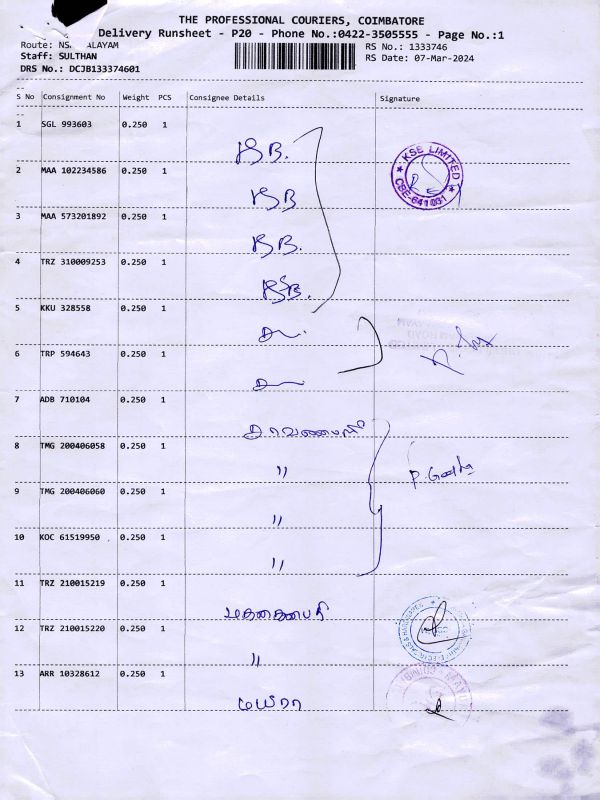 THE PROFESSIONAL COURIERS, COIMBATORE
Delivery Runsheet - P20 - Phone No.:0422-3505555 - Page No.:1
Route: ALAYAM RS No.: 1333746
Staff: SULTHAN RS Date: 07-Mar-2024
DRS No.: DCJB133374601
S No Consignment No Weight PCS Consignee Details Signature
1 SGL 993603 0.250 1
KSB.
KSE LIMITED CBE-641 031
2 MAA 102234586 0.250 1
KSB
3 MAA 573201892 0.250 1
KSB.
4 TRZ 310009253 0.250 1
KSB.
5 KKU 328558 0.250 1
6 TRP 594643 0.250 1
7 ADB 710104 0.250 1
8 TMG 200406058 0.250 1
"
9 TMG 200406060 0.250 1
"
10 KOC 61519950 0.250 1
"
11 TRZ 210015219 0.250 1
12 TRZ 210015220 0.250 1
"
13 ARR 10328612 0.250 1